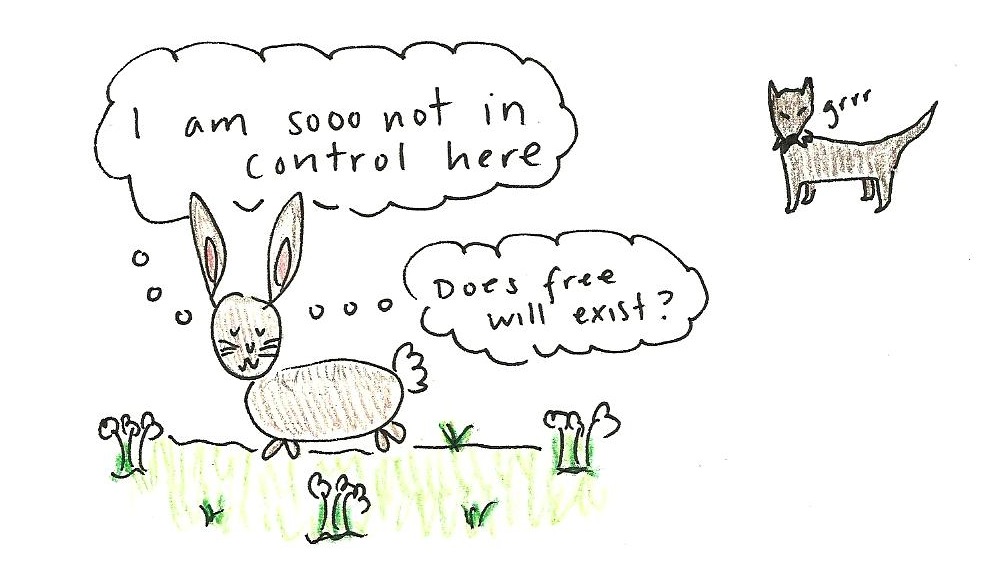 I am sooo not in
control here
grrr
Does free
will exist?